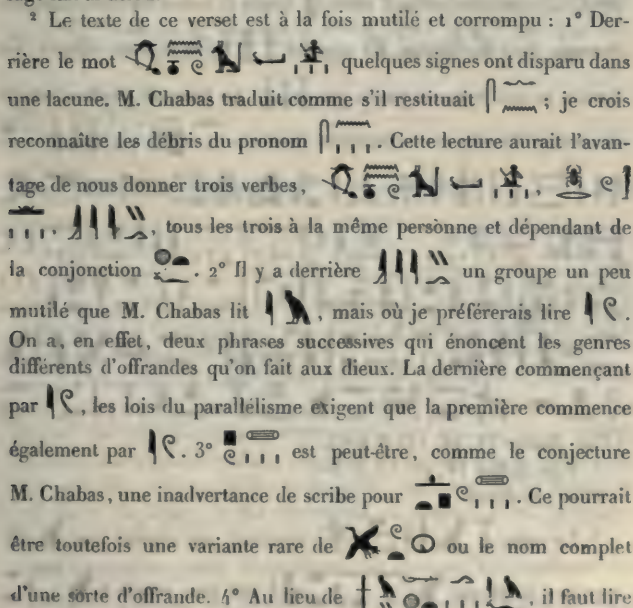 ² Le texte de ce verset est à la fois mutilé et corrompu : 1° Der-
rière le mot , quelques signes ont disparu dans
une lacune. M. Chabas traduit comme s'il restituait ; je crois
reconnaître les débris du pronom . Cette lecture aurait l'avan-
tage de nous donner trois verbes, , 
, , tous les trois à la même personne et dépendant de
la conjonction . 2° Il y a derrière un groupe un peu
mutilé que M. Chabas lit , mais où je préférerais lire .
On a, en effet, deux phrases successives qui énoncent les genres
différents d'offrandes qu'on fait aux dieux. La dernière commençant
par , les lois du parallélisme exigent que la première commence
également par . 3° est peut-être, comme le conjecture
M. Chabas, une inadvertance de scribe pour . Ce pourrait
être toutefois une variante rare de ou le nom complet
d'une sorte d'offrande. 4° Au lieu de , il faut lire